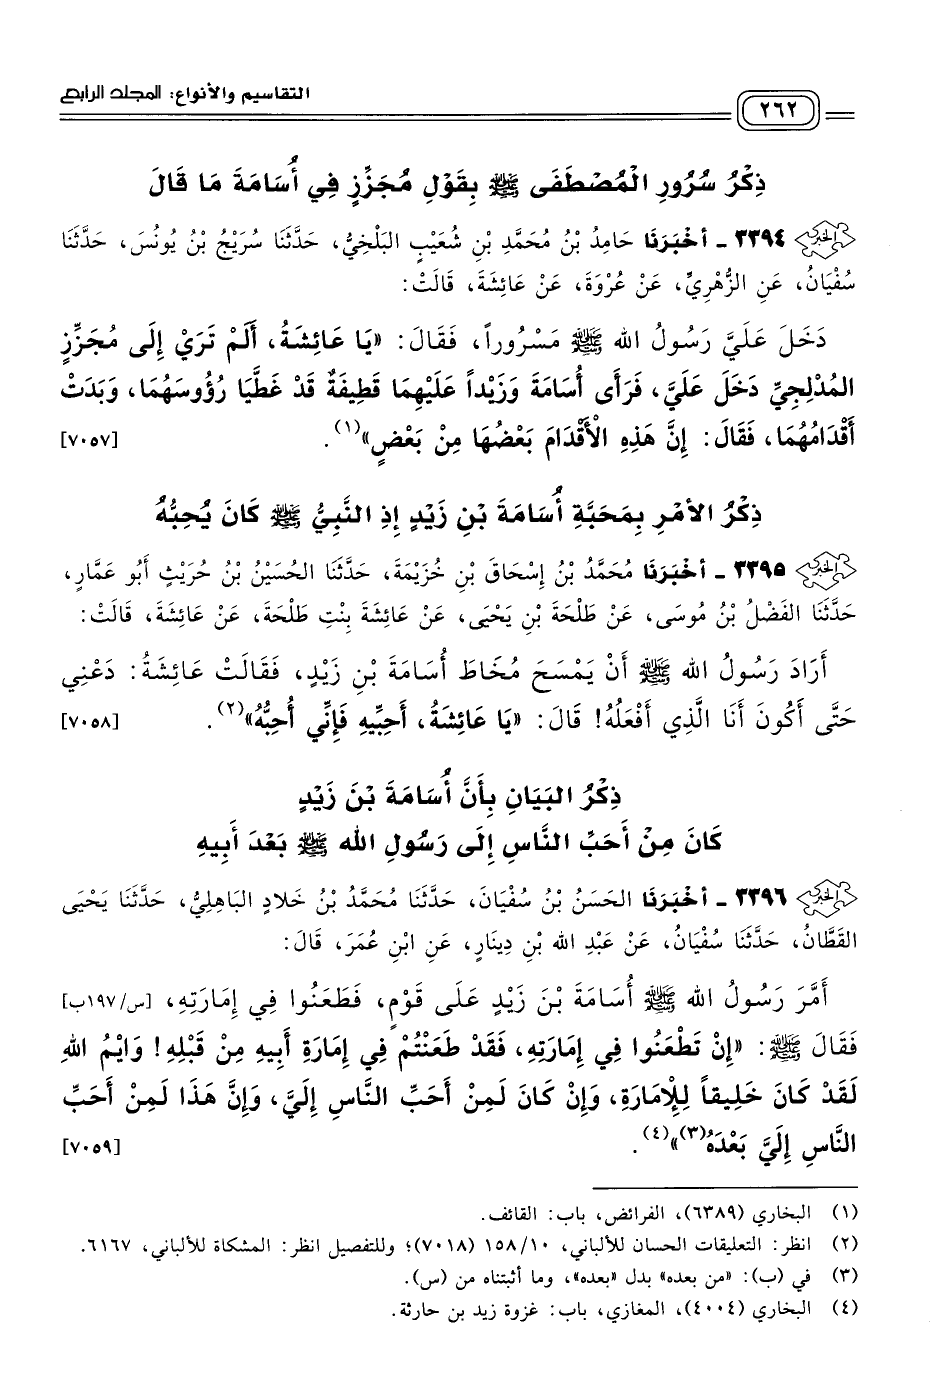 التقاسيم والأنواع: المجلد الرابع
٢٦٢
ذِكْرُ سُرُورِ الْمُصْطَفَى ﷺ بِقَوْلِ مُجَزِّزٍ فِي أُسَامَةَ مَا قَالَ
٣٣٩٤ ـ أَخْبَرَنَا حَامِدُ بْنُ مُحَمَّدِ بْنِ شُعَيْبٍ البَلْخِيُّ، حَدَّثَنَا سُرَيْجُ بْنُ يُونُسَ، حَدَّثَنَا
سُفْيَانُ، عَنِ الزُّهْرِيِّ، عَنْ عُرْوَةَ، عَنْ عَائِشَةَ، قَالَتْ:
دَخَلَ عَلَيَّ رَسُولُ الله ﷺ مَسْرُوراً، فَقَالَ: «يَا عَائِشَةُ، أَلَمْ تَرَيْ إِلَى مُجَزِّزٍ
المُدْلِجِيِّ دَخَلَ عَلَيَّ، فَرَأَى أُسَامَةَ وَزَيْداً عَلَيْهِمَا قَطِيفَةٌ قَدْ غَطَّيَا رُؤُوسَهُمَا، وَبَدَتْ
أَقْدَامُهُمَا، فَقَالَ: إِنَّ هَذِهِ الْأَقْدَامَ بَعْضُهَا مِنْ بَعْضٍ»(١). [٧٠٥٧]
ذِكْرُ الأَمْرِ بِمَحَبَّةِ أُسَامَةَ بْنِ زَيْدٍ إِذِ النَّبِيُّ ﷺ كَانَ يُحِبُّهُ
٣٣٩٥ ـ أَخْبَرَنَا مُحَمَّدُ بْنُ إِسْحَاقَ بْنِ خُزَيْمَةَ، حَدَّثَنَا الحُسَيْنُ بْنُ حُرَيْثٍ أَبُو عَمَّارٍ،
حَدَّثَنَا الفَضْلُ بْنُ مُوسَى، عَنْ طَلْحَةَ بْنِ يَحْيَى، عَنْ عَائِشَةَ بِنْتِ طَلْحَةَ، عَنْ عَائِشَةَ، قَالَتْ:
أَرَادَ رَسُولُ الله ﷺ أَنْ يَمْسَحَ مُخَاطَ أُسَامَةَ بْنِ زَيْدٍ، فَقَالَتْ عَائِشَةُ: دَعْنِي
حَتَّى أَكُونَ أَنَا الَّذِي أَفْعَلُهُ! قَالَ: «يَا عَائِشَةُ، أَحِبِّيهِ فَإِنِّي أُحِبُّهُ»(٢). [٧٠٥٨]
ذِكْرُ البَيَانِ بِأَنَّ أُسَامَةَ بْنَ زَيْدٍ
كَانَ مِنْ أَحَبِّ النَّاسِ إِلَى رَسُولِ الله ﷺ بَعْدَ أَبِيهِ
٣٣٩٦ ـ أَخْبَرَنَا الحَسَنُ بْنُ سُفْيَانَ، حَدَّثَنَا مُحَمَّدُ بْنُ خَلادٍ البَاهِلِيُّ، حَدَّثَنَا يَحْيَى
القَطَّانُ، حَدَّثَنَا سُفْيَانُ، عَنْ عَبْدِ الله بْنِ دِينَارٍ، عَنِ ابْنِ عُمَرَ، قَالَ:
أَمَّرَ رَسُولُ الله ﷺ أُسَامَةَ بْنَ زَيْدٍ عَلَى قَوْمٍ، فَطَعَنُوا فِي إِمَارَتِهِ، [س/١٩٧ب]
فَقَالَ ﷺ: «إِنْ تَطْعَنُوا فِي إِمَارَتِهِ، فَقَدْ طَعَنْتُمْ فِي إِمَارَةِ أَبِيهِ مِنْ قَبْلِهِ! وَايْمُ اللهِ
لَقَدْ كَانَ خَلِيقاً لِلْإِمَارَةِ، وَإِنْ كَانَ لَمِنْ أَحَبِّ النَّاسِ إِلَيَّ، وَإِنَّ هَذَا لَمِنْ أَحَبِّ
النَّاسِ إِلَيَّ بَعْدَهُ(٣)»(٤). [٧٠٥٩]
(١) البخاري (٦٣٨٩)، الفرائض، باب: القائف.
(٢) انظر: التعليقات الحسان للألباني، ١٥٨/١٠ (٧٠١٨)؛ وللتفصيل انظر: المشكاة للألباني، ٦١٦٧.
(٣) في (ب): «من بعده» بدل «بعده»، وما أثبتناه من (س).
(٤) البخاري (٤٠٠٤)، المغازي، باب: غزوة زيد بن حارثة.